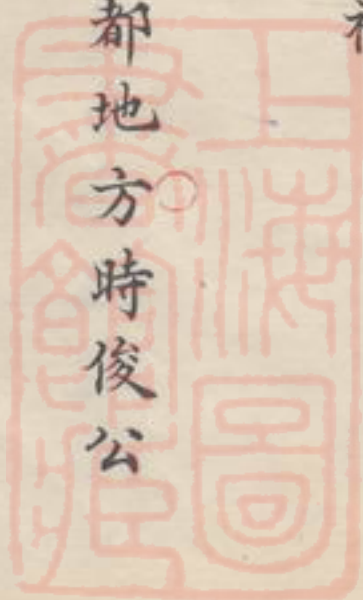 都地方時俊公
上海圖
書館藏